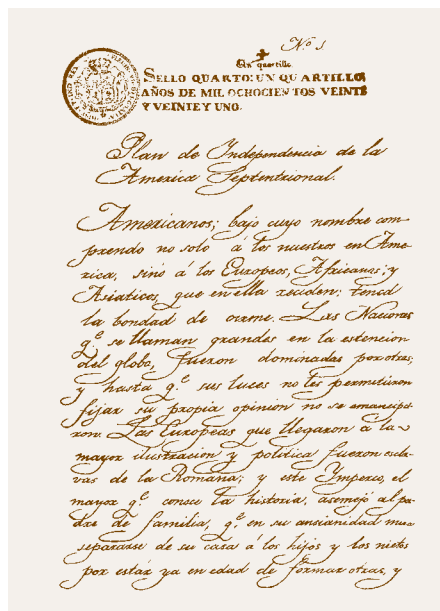 N.º 1
Un quartillo.
SELLO QUARTO: UN QUARTILLO,
AÑOS DE MIL OCHOCIENTOS VEINTE
Y VEINTE Y UNO.
Plan de Independencia de la
America Septentrional.
Americanos; bajo cuyo nombre com-
prendo no solo á los nuestros en Ame-
rica, sinó á los Europeos, Africanos; y
Asiaticos, que en ella reciden: tened
la bondad de oirme. Las Naciones
q.ᵉ se llaman grandes en la estencion
del globo, fueron dominadas por otras,
y hasta q.ᵉ sus luces no les permitieron
fijar su propia opinion no se emancipa-
ron. Las Europeas que llegaron á la
mayor ilustracion y politica fueron escla-
vas de la Romana; y este Imperio, el
mayor q.ᵉ conoce la historia, asemejó al pa-
dre de familia, q.ᵉ en su ansianidad mue
separarse de su casa á los hijos y los nietos
por estár ya en edad de formar otras, y